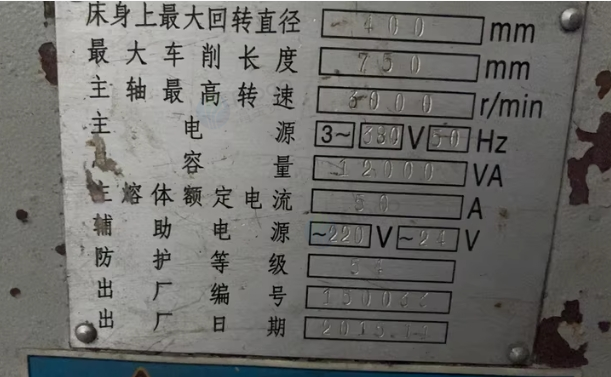 床身上最大回转直径 400 mm
最大车削长度 750 mm
主轴最高转速 3000 r/min
主电源 3~ 380 V 50 Hz
总容量 12000 VA
主熔体额定电流 50 A
辅助电源 ~220 V ~24 V
防护等级 54
出厂编号
出厂日期